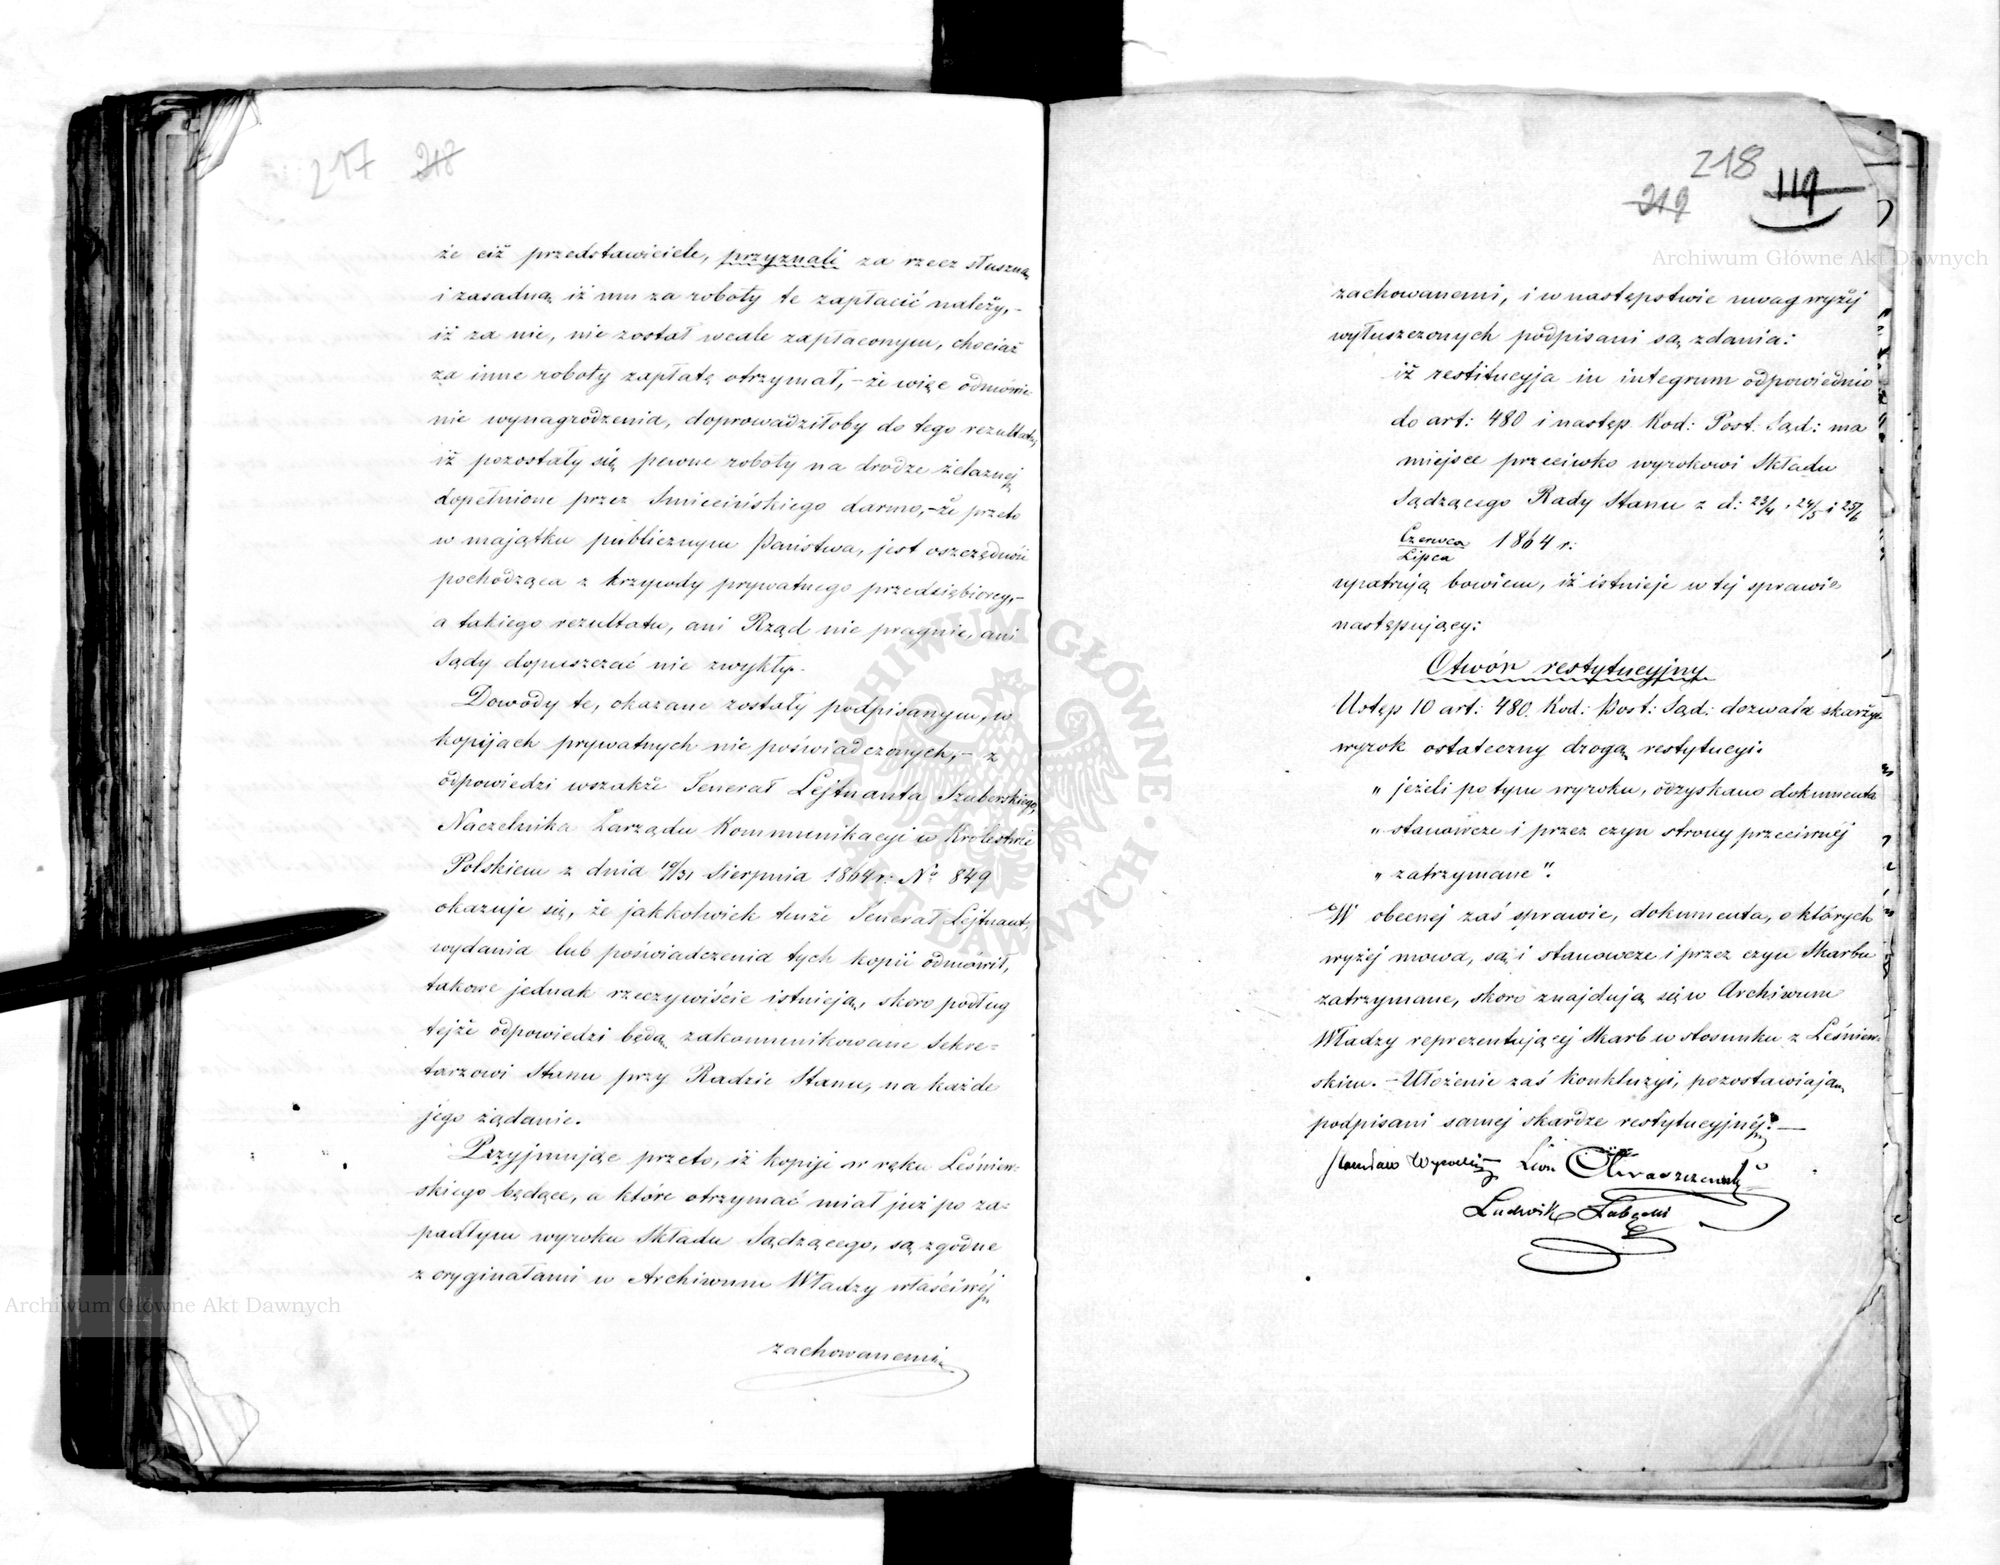 217 218
że ciż przedstawiciele, przyznali za rzecz słuszną
i zasadną iż mu za roboty te zapłacić należy, –
iż za nie, nie został wcale zapłaconym, chociaż
za inne roboty zapłatę otrzymał, – że więc odmówie
nie wynagrodzenia, doprowadziłoby do tego rezultatu,
iż pozostały się pewne roboty na drodze żelaznej
dopełnione przez Smiecińskiego darmo, – że przeto
w majątku publicznym Państwa, jest oszczędność
pochodząca z krzywdy prywatnego przedsiębiorcy, –
a takiego rezultatu, ani Rząd nie pragnie, ani
Sądy dopuszczać nie zwykły. –
Dowody te, okazane zostały podpisanym, w
kopijach prywatnych nie poświadczonych, – z
odpowiedzi wszakże Jenerał Lejtnanta Szuberskiego,
Naczelnika Zarządu Kommunikacyi w Królestwie
Polskiem z dnia 19/31 Sierpnia 1864 r. No 849
okazuje się, że jakkolwiek tenże Jenerał Lejtnant,
wydania lub poświadczenia tych kopii odmówił,
takowe jednak rzeczywiście istnieją, skoro podług
tejże odpowiedzi będą zakommunikowane Sekre=
tarzowi Stanu przy Radzie Stanu, na każde
jego żądanie.
Przyjmując przeto, iż kopije w ręku Leśniew-
skiego będące, a które otrzymać miał już po za=
padłym wyroku Składu Sądzącego, są zgodne
z oryginałami w Archiwum Władzy właściwéj
zachowanemi
218
219 119
Archiwum Główne Akt Dawnych
zachowanemi, i w następstwie uwag wyżéj
wyłuszczonych podpisani są zdania:
iż restitucyja in integrum odpowiednio
do art: 480 i następ. Kod: Post: Sąd: ma
miejsce przeciwko wyrokowi Składu
Sądzącego Rady Stanu z d: 23/4, 24/5 i 25/6
Czerwca/Lipca 1864 r:
upatrują bowiem, iż istnieje w tej sprawie
następujący:
Otwór restytucyjny
Ustęp 10 art: 480. Kod: Post: Sąd: dozwala skarżyć
wyrok ostateczny drogą restytucyi.
„ jeżeli po tym wyroku, odzyskano dokumenta
„ stanowcze i przez czyn strony przeciwnéj
„ zatrzymane".
W obecnej zaś sprawie, dokumenta, o których
wyżéj mowa, są i stanowcze i przez czyn Skarbu
zatrzymane, skoro znajdują się w Archiwum
Władzy reprezentującéj Skarb w stosunku z Leśniew-
skim. – Ułożenie zaś konkluzyi, pozostawiają
podpisani samej skardze restytucyjnéj. —
Stanisław Leon
Ludwik
ARCHIWUM GŁÓWNE AKT DAWNYCH
Archiwum Główne Akt Dawnych